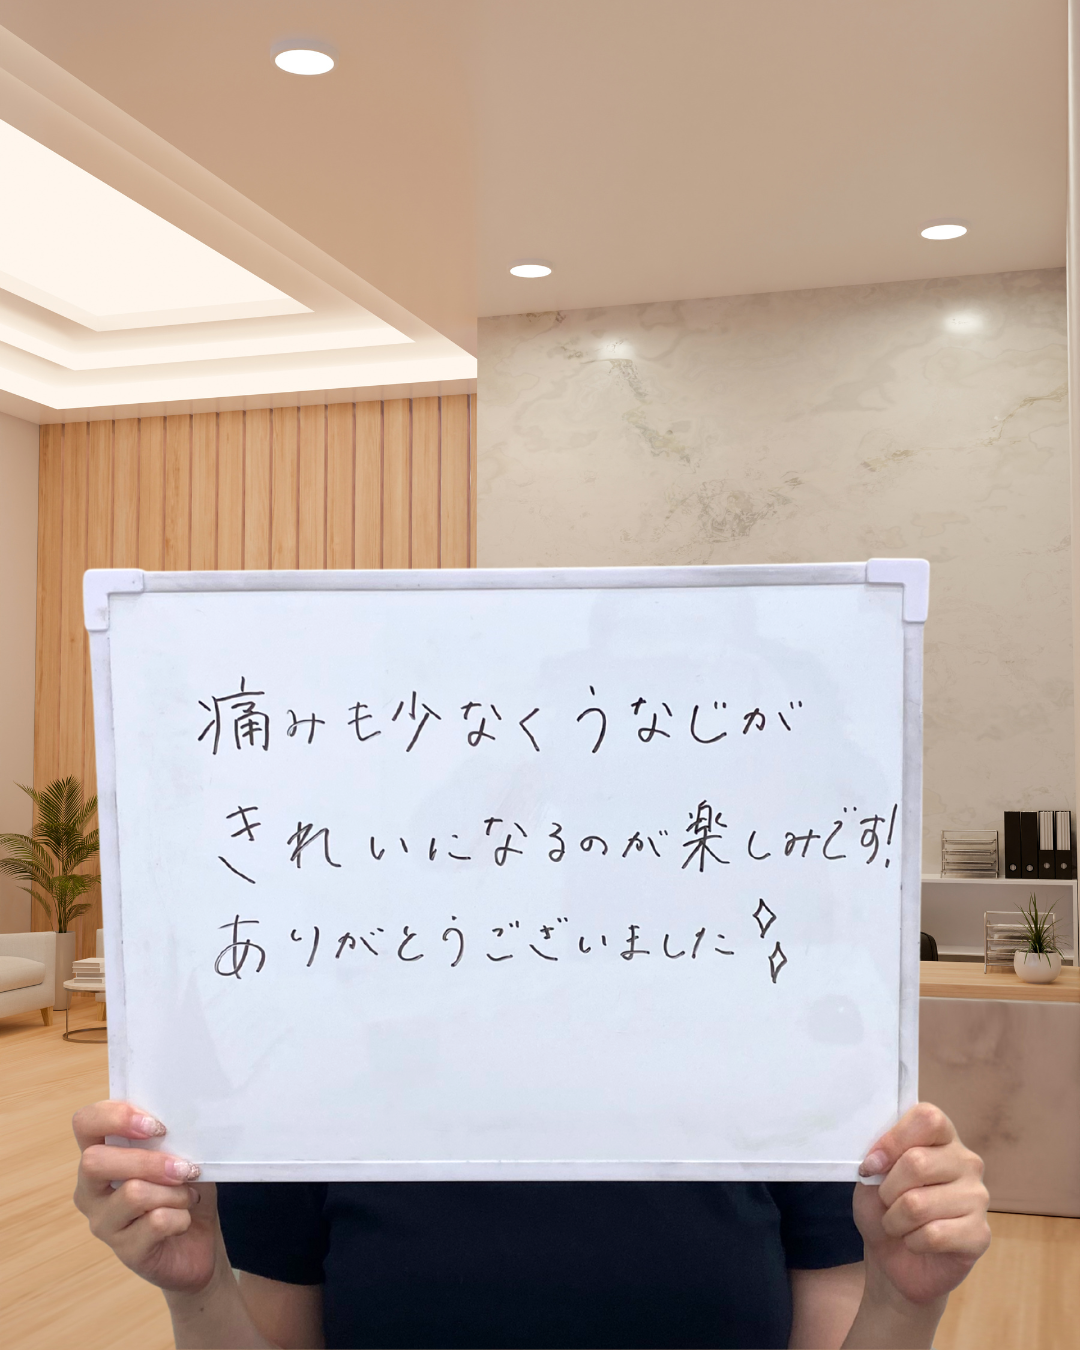 痛みも少なくうなじが
きれいになるのが楽しみです!
ありがとうございました